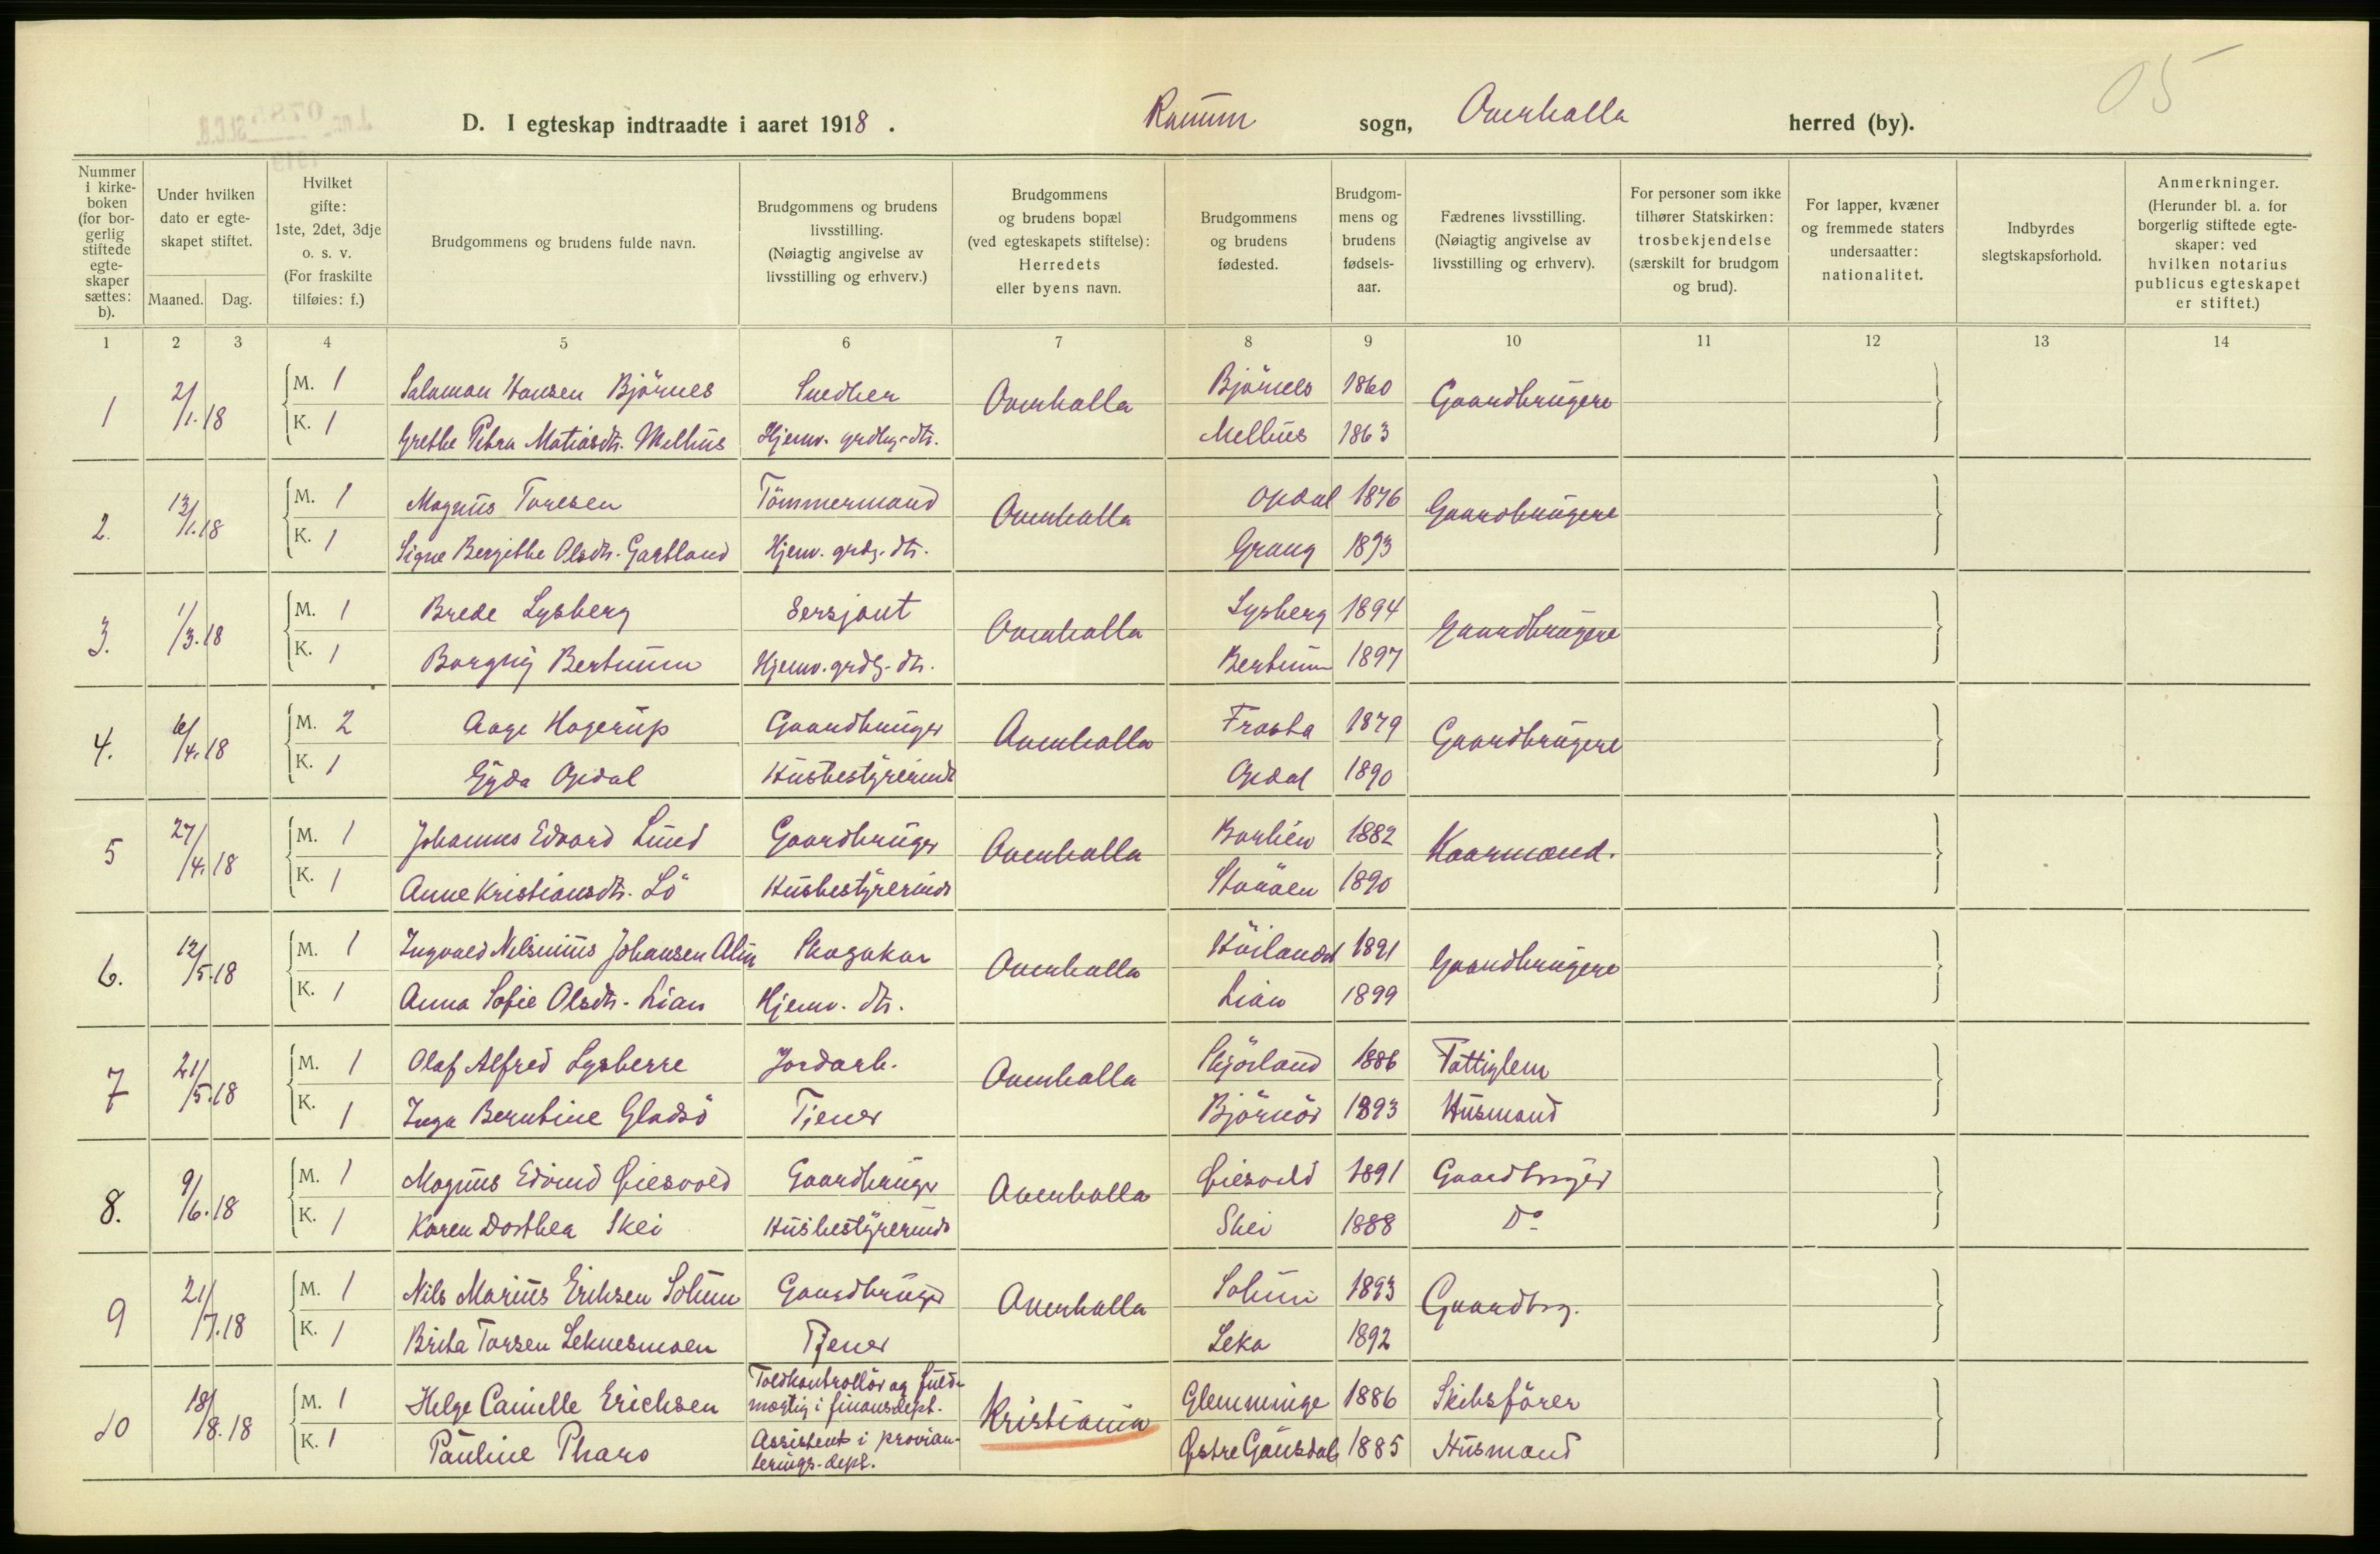 05
D. I egteskap indtraadte i aaret 1918. Ranum sogn, Overhalla herred (by).
Nummer i kirke- boken (for bor- gerlig stiftede egte- skaper sættes: b).
Under hvilken dato er egte- skapet stiftet.
Maaned. Dag.
Hvilket gifte: 1ste, 2det, 3dje o. s. v. (For fraskilte tilføies: f.)
Brudgommens og brudens fulde navn.
Brudgommens og brudens livsstilling. (Nøiagtig angivelse av livsstilling og erhverv.)
Brudgommens og brudens bopæl (ved egteskapets stiftelse): Herredets eller byens navn.
Brudgommens og brudens fødested.
Brudgom- mens og brudens fødsels- aar.
Fædrenes livsstilling. (Nøiagtig angivelse av livsstilling og erhverv).
For personer som ikke tilhører Statskirken: trosbekjendelse (særskilt for brudgom og brud).
For lapper, kvæner og fremmede staters undersaatter: nationalitet.
Indbyrdes slegtskapsforhold.
Anmerkninger. (Herunder bl. a. for borgerlig stiftede egte- skaper: ved hvilken notarius publicus egteskapet er stiftet.)
1 2 3 4 5 6 7 8 9 10 11 12 13 14
1 2/1.18 M. 1 Salamon Hansen Björnes Snedker Overhalla Björnes 1860 Gaardbrugere
K. 1 Grethe Petra Matiasdtr. Melhus Hjemv. grdbr.-dtr. Melhus 1863
2. 13/1.18 M. 1 Magnus Toresen Tömmermand Overhalla Opdal 1876 Gaardbrugere
K. 1 Signe Bergithe Olsdtr. Gartland Hjemv. grdb.-dtr. Grong 1893
3. 1/3.18 M. 1 Brede Lysberg Sersjant Overhalla Lysberg 1894 Gaardbrugere
K. 1 Borgny Bertnum Hjemv. grdb.-dtr. Bertnum 1897
4. 6/4.18 M. 2 Aage Hagerup Gaardbruger Overhalla Frosta 1879 Gaardbrugere
K. 1 Gyda Opdal Husbestyrerinde Opdal 1890
5 27/4.18 M. 1 Johannes Edvard Lund Gaardbruger Overhalla 1882
K. 1 Anne Kristiansdtr. Lö Husbestyrerinde 1890
6. 12/5.18 M. 1 Ingvald Nilsinius Johansen Alin Skogskar Overhalla Höilandet 1891 Gaardbrugere
K. 1 Anna Sofie Olsdtr. Lian Hjemv. dtr. Lian 1899
7 21/5.18 M. 1 Olaf Alfred Lysberre Jordarb. Overhalla Skjörland 1886 Fattiglem
K. 1 Inga Berntine Gladsö Tjener Björnör 1893 Husmand
8. 9/6.18 M. 1 Magnus Edvind Öiesvold Gaardbruger Overhalla Öiesvold 1891 Gaardbruger
K. 1 Karen Dorthea Skei Husbestyrerinde Skei 1888 Do
9 21/7.18 M. 1 Nils Marius Eriksen Solum Gaardbruger Overhalla Solum 1893 Gaardbrg.
K. 1 Brita Torsen Leknesmoen Tjener Leka 1892
10 18/8.18 M. 1 Helge Camille Erichsen Toldkontrollör og fuld- mægtig i finansdept. Kristiania Glemminge 1886 Skibsförer
K. 1 Pauline Pharo Assistent i provian- terings-dept. Östre Gausdal 1885 Husmand